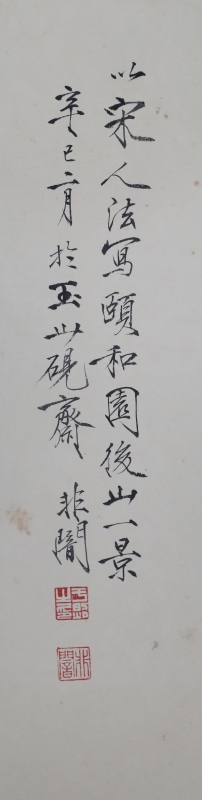 以宋人法寫頤和園後山一景
辛巳二月於玉山硯齋 非闇